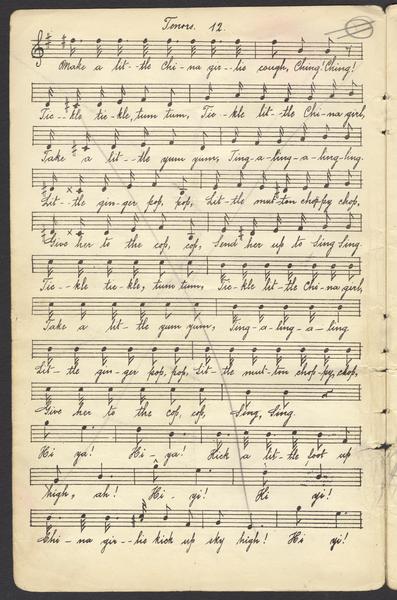 Tenors. 12.
Make a lit--tle Chi-na gir--lie cough, Ching! Ching!
Tic--kle tic-kle, tum tum, Tic-kle lit-tle Chi-na girl,
Take a lit--tle yum yum, Ting-a-ling-a-ling-ling.
Lit--tle gin-ger pop, pop, Lit-tle mut-ton chop-py chop,
Give her to the cop, cop, Send her up to Sing Sing.
Tic--kle tic-kle, tum tum, Tic-kle lit-tle Chi-na girl,
Take a lit-tle yum yum, Ting-a-ling-a-ling.
Lit-tle gin-ger pop, pop, Lit-tle mut-ton chop-py, chop,
Give her to the cop, cop, Sing, Sing.
Hi ya! Hi-ya! Kick a lit-tle foot up
high, ah! Hi-yi! Hi yi!
Chi-na gir--lie kick up sky high! Hi yi!